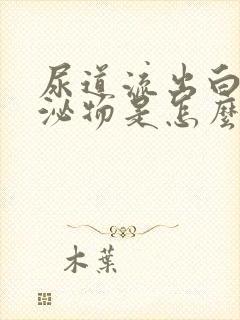 尿道流出白
泌物是怎麼
木葉